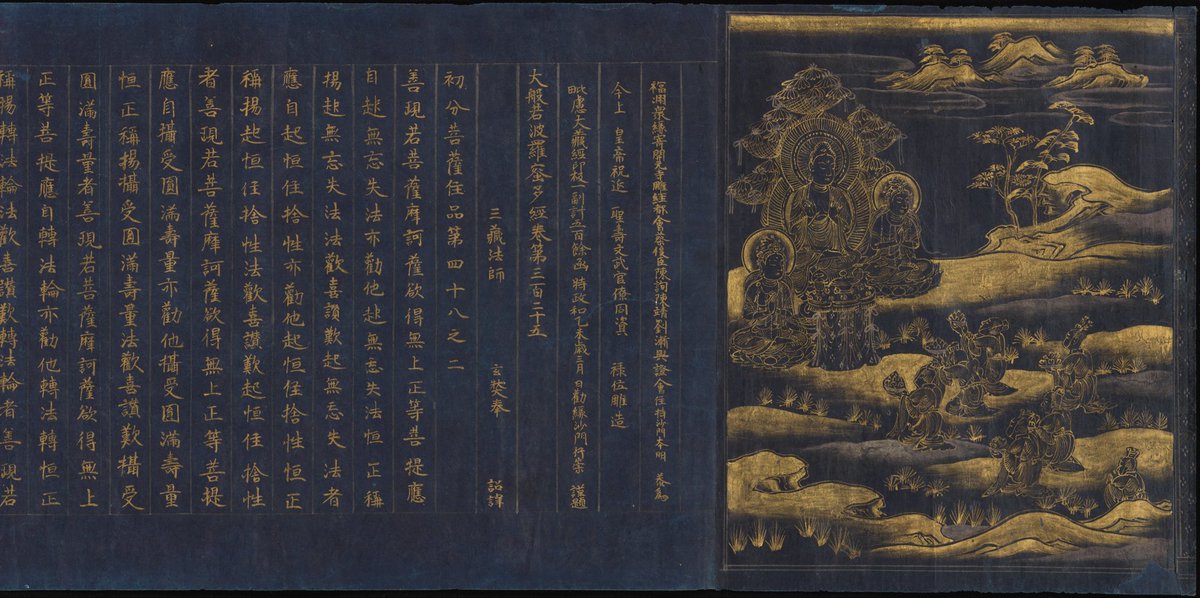 福州衆縁寄開元寺雕經都會蔡俊臣陳詢陳靖劉漸與證會住持沙門本明 恭為
今上 皇帝祝延 聖壽文武官僚同資 禄位雕造
毗盧大藏經印板一副計五百餘函 時政和乙未歲三月日勸縁沙門行崇 謹題
大般若波羅蜜多經卷第三百二十五
三藏法師 玄奘奉 詔譯
初分菩薩住品第四十八之二
善現若菩薩摩訶薩欲得無上正等菩提應
自起無忘失法亦勸他起無忘失法恒正稱
揚起無忘失法法歡喜讚歎起無忘失法者
應自起恒住捨性亦勸他起恒住捨性恒正
稱揚起恒住捨性法歡喜讚歎起恒住捨性
者善現若菩薩摩訶薩欲得無上正等菩提
應自攝受圓滿壽量亦勸他攝受圓滿壽量
恒正稱揚攝受圓滿壽量法歡喜讚歎攝受
圓滿壽量者善現若菩薩摩訶薩欲得無上
正等菩提應自轉法輪亦勸他轉法轉恒正
稱揚轉法輪法歡喜讚歎轉法輪者善現若